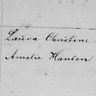 Laura Christine
Amalie Hansen